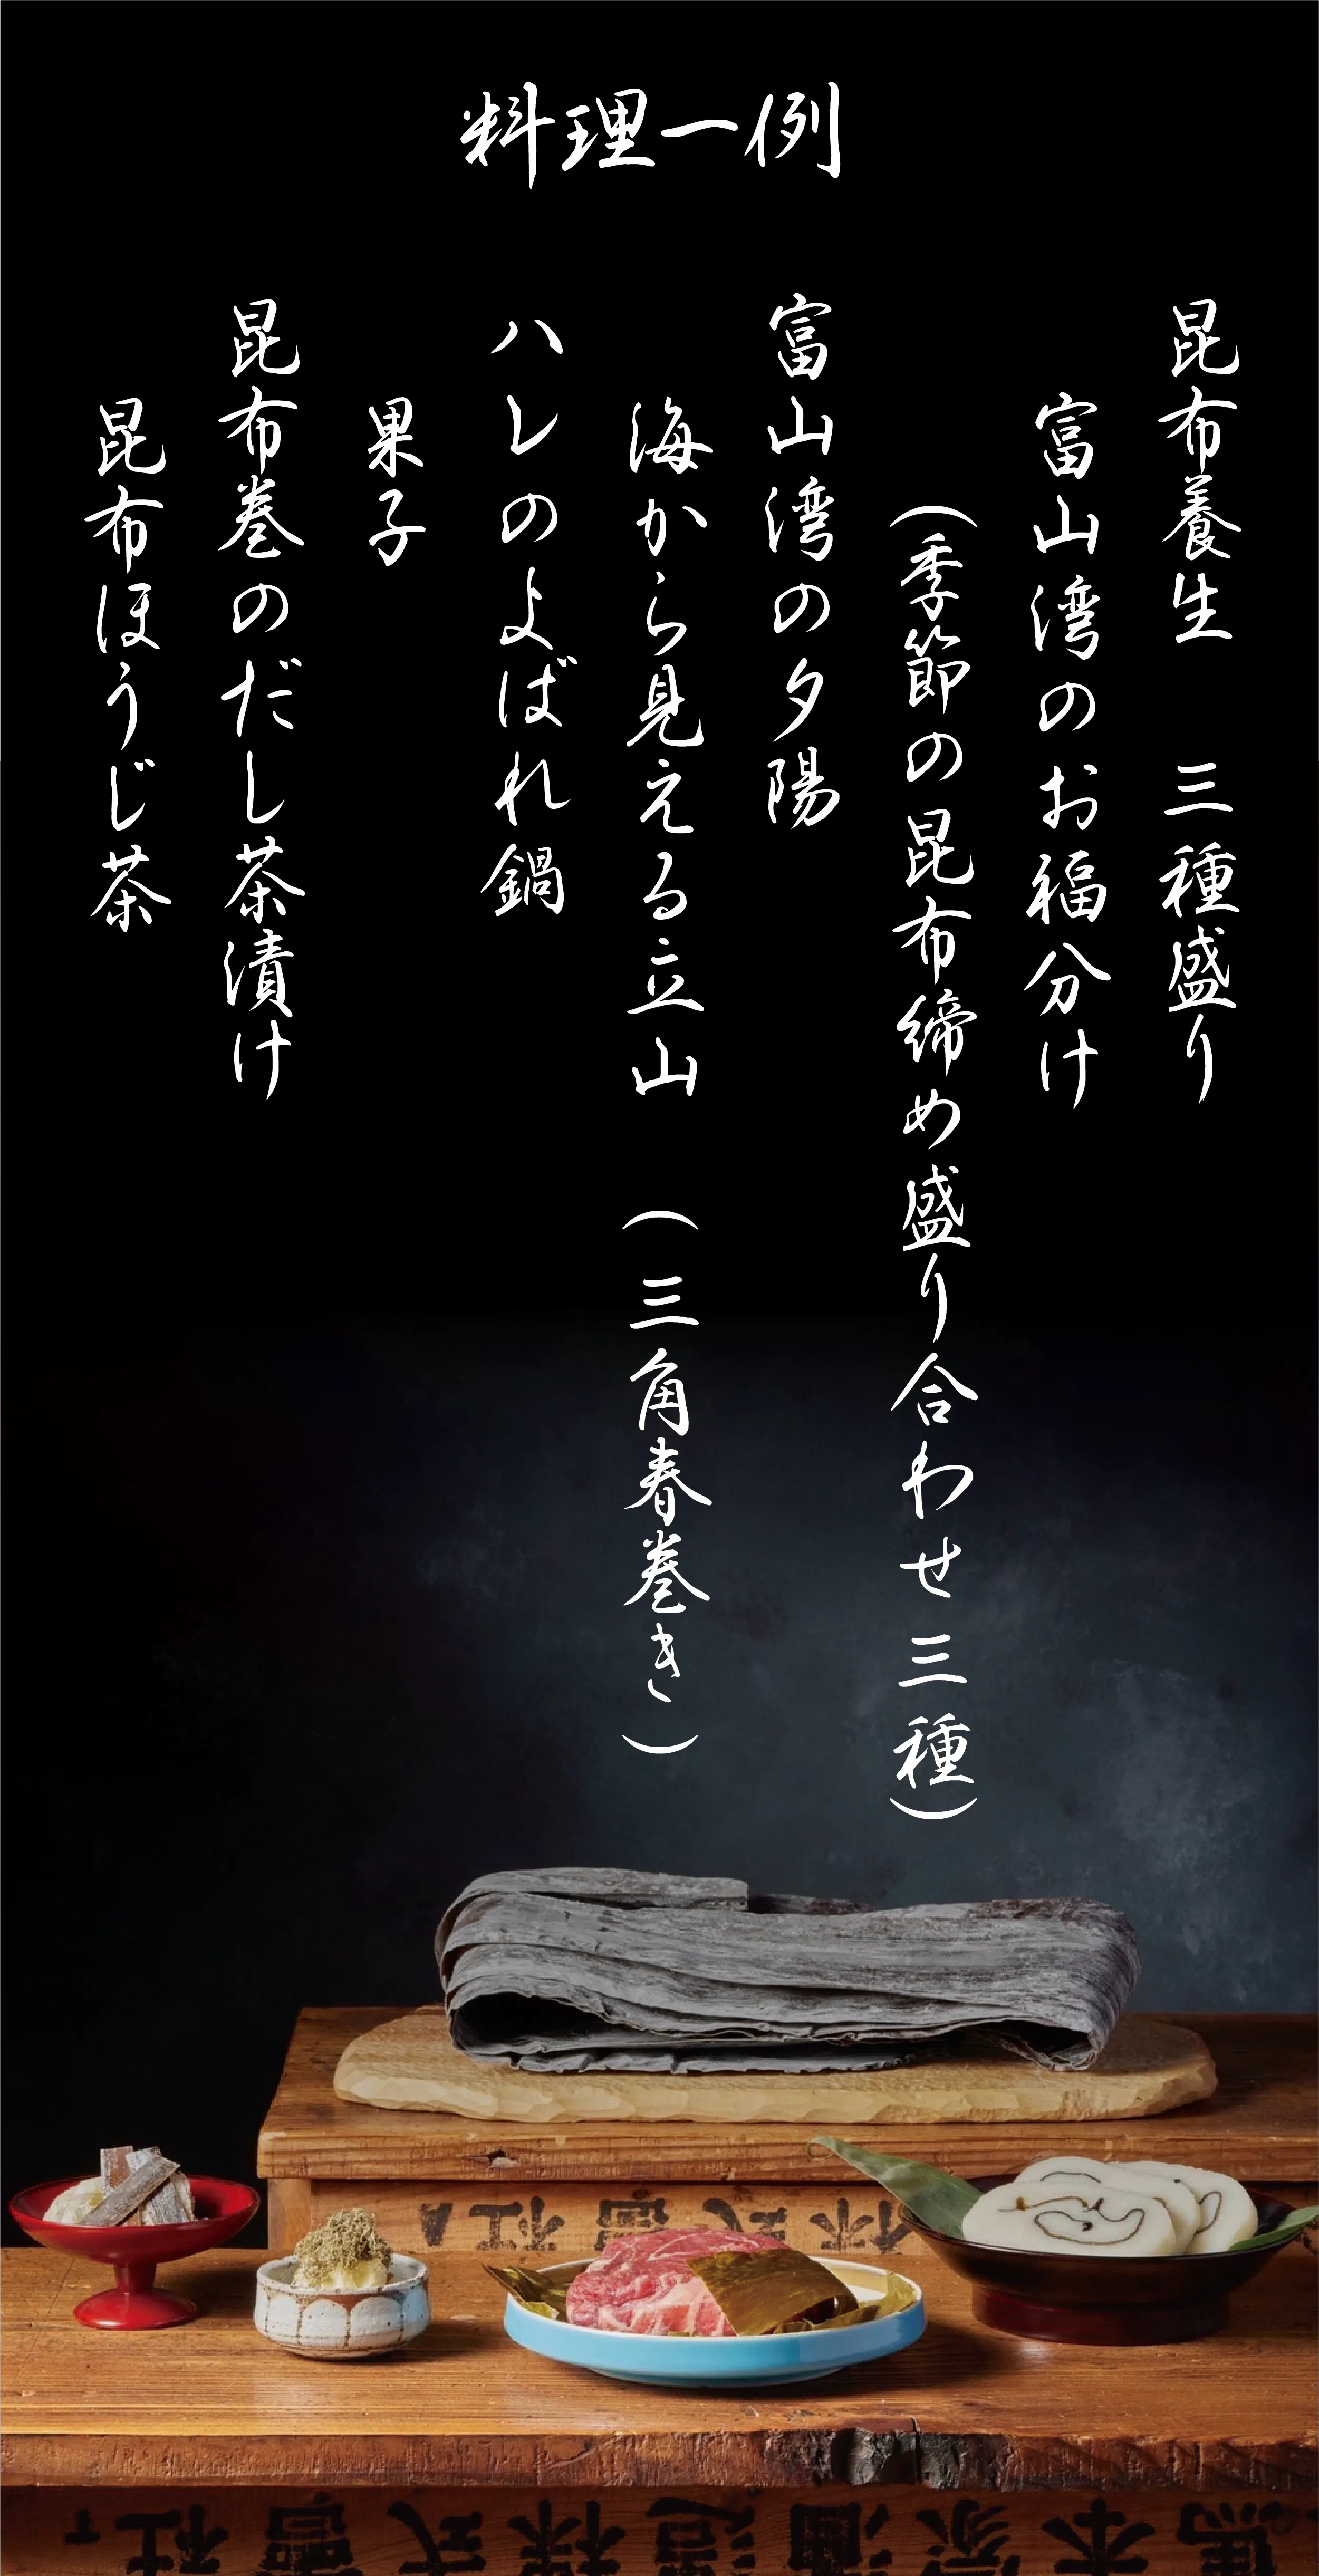 料理一例
昆布養生　三種盛り
富山湾のお福分け
（季節の昆布締め盛り合わせ三種）
富山湾の夕陽
海から見える立山　（三角春巻き）
ハレのよばれ鍋
果子
昆布巻のだし茶漬け
昆布ほうじ茶